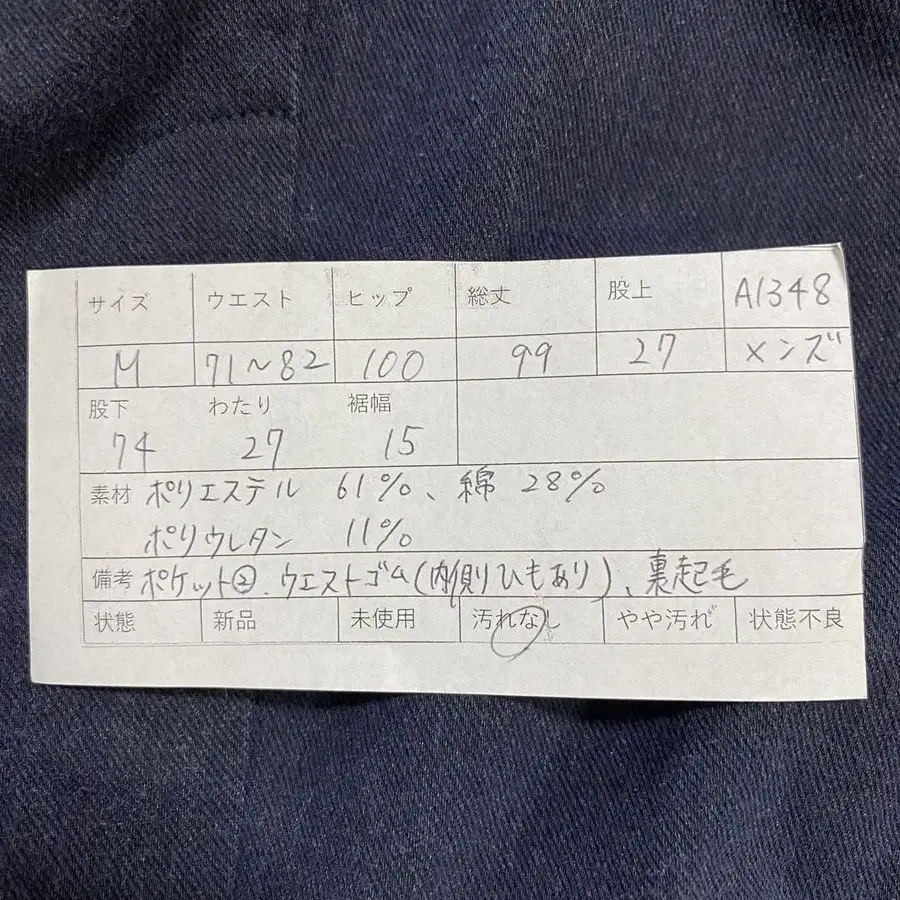 サイズ ウエスト ヒップ 総丈 股上 A1348
M 71~82 100 99 27 メンズ
股下 わたり 裾幅
74 27 15
素材 ポリエステル 61%、綿 28%
ポリウレタン 11%
備考 ポケット②、ウエストゴム(内側ひもあり)、裏起毛
状態 新品 未使用 汚れなし やや汚れ 状態不良